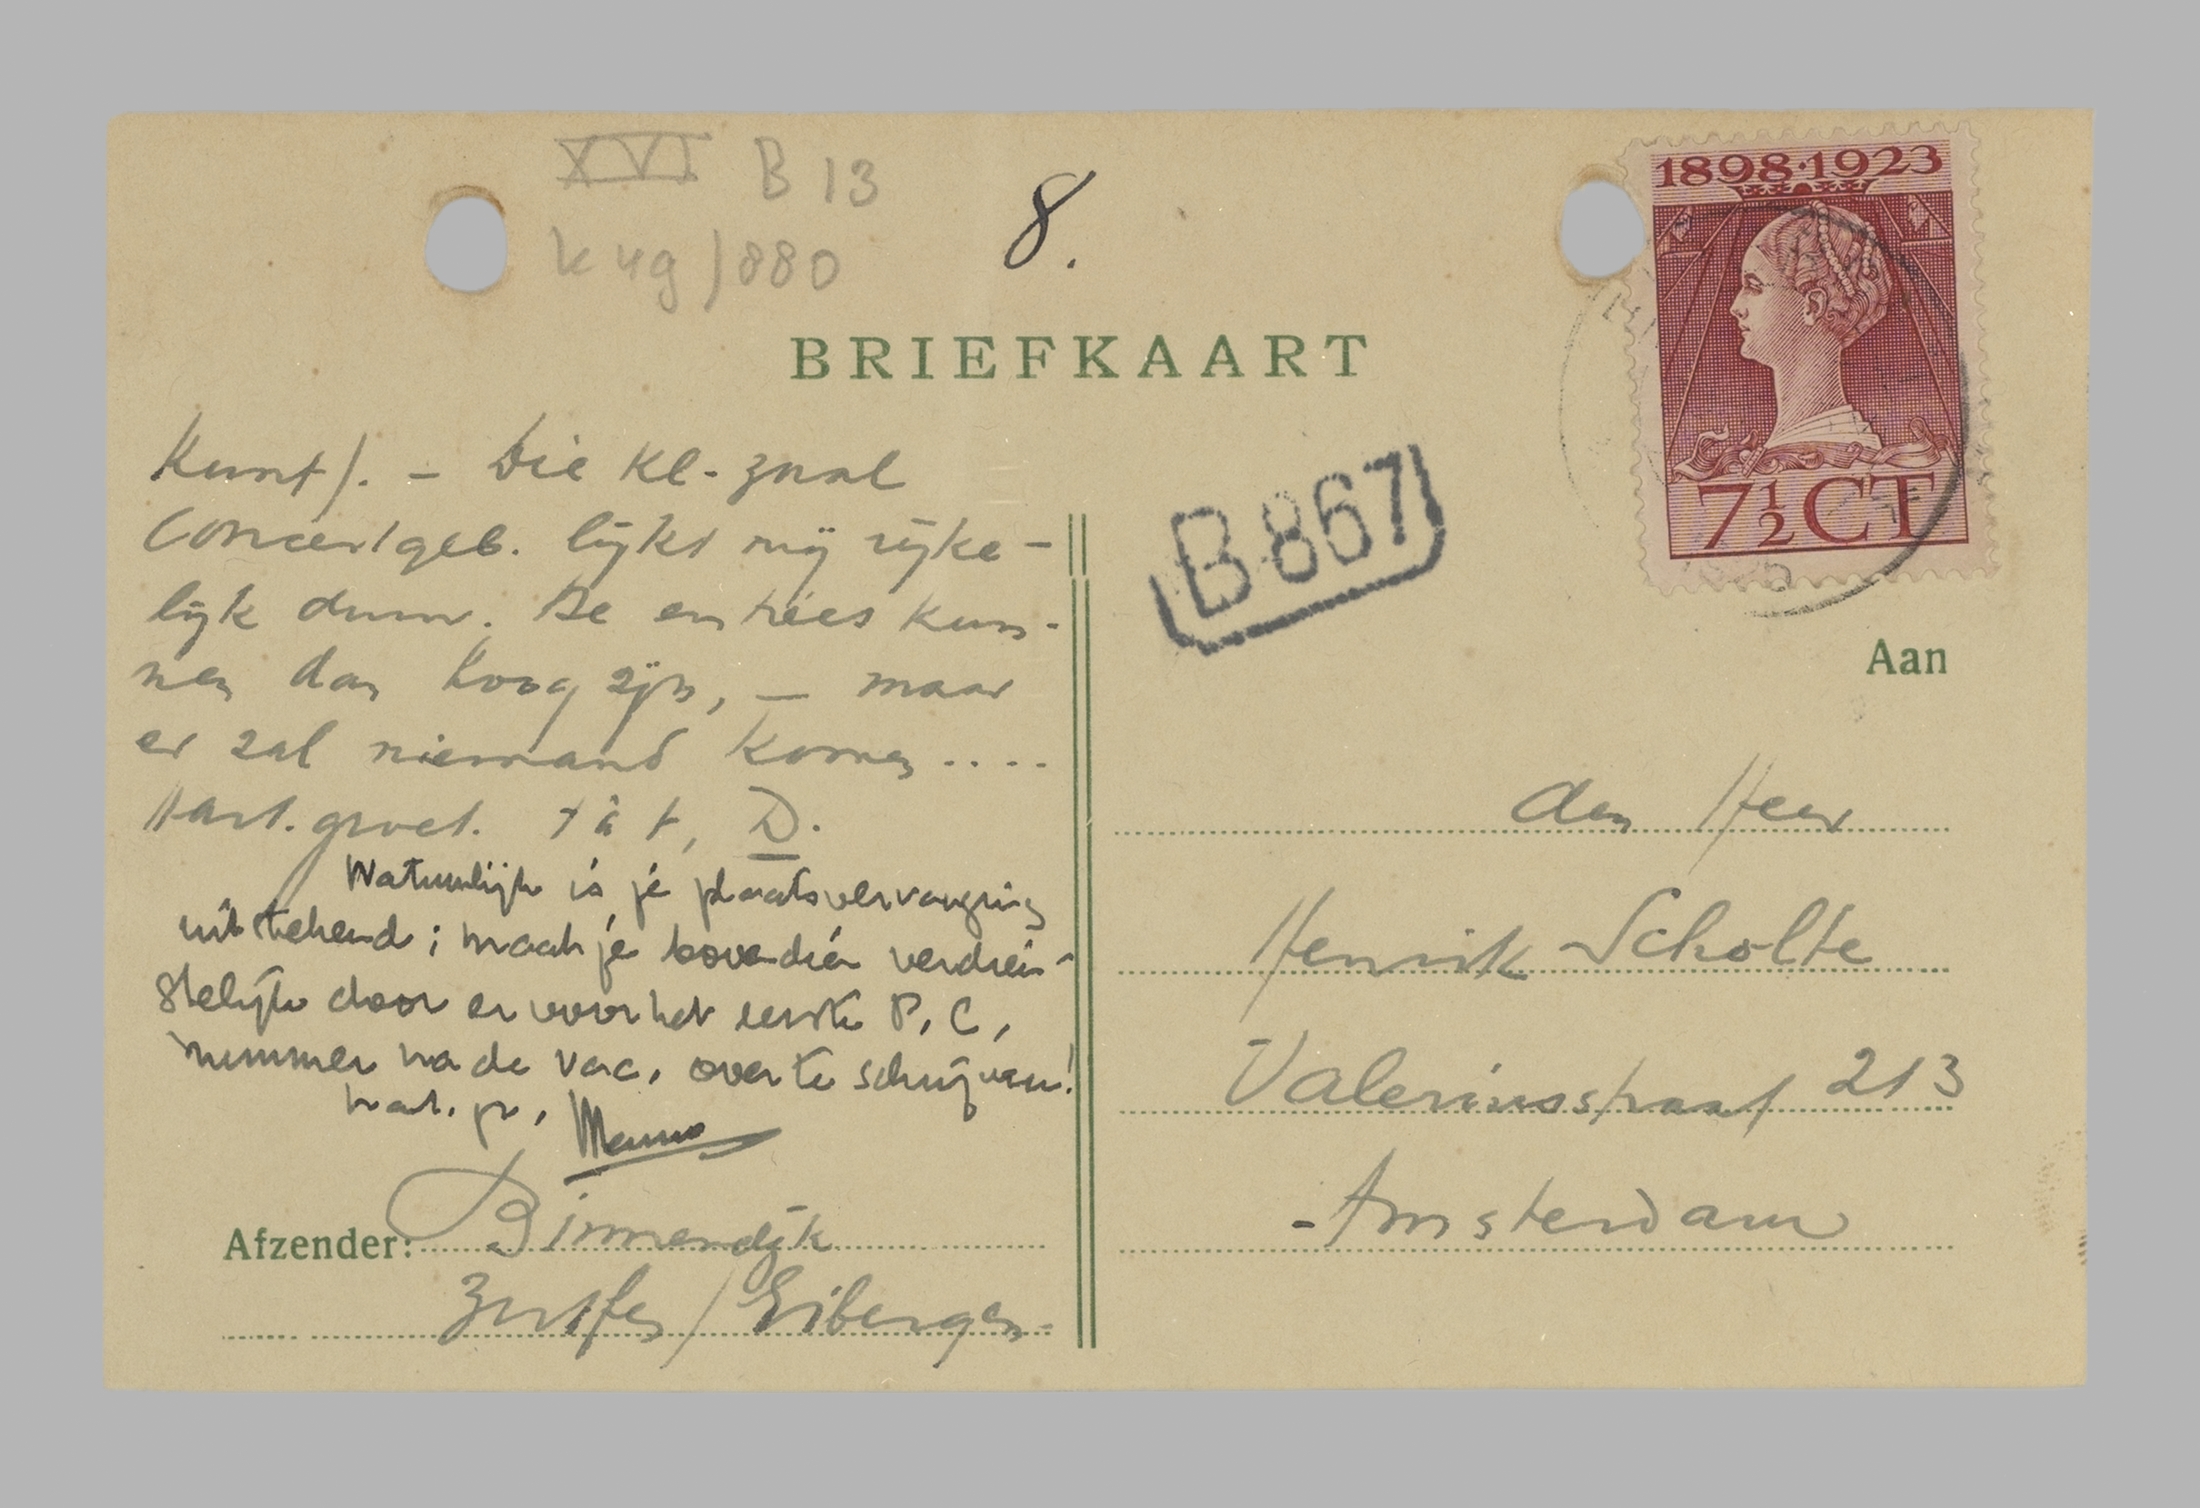 XVI B 13
k ug / 880
8.
1898·1923
7½ CT
BRIEFKAART
B 867
Kunst). – Die Kl. zaal
Concertgeb. lijkt mij rijke-
lijk duur. De entrées kun-
nen dan hoog zijn, – maar
er zal niemand komen ....
Hart. groet. t à t, D.
Natuurlijk is je plaatsvervanging
uitstekend; maak je bovendien verdien-
stelijk door er voor het eerste P.C.
nummer na de vac. over te schrijven!
hart. gr, Menno
Afzender: Binnendijk
Zutfen / Eibergen
Aan
den Heer
Henrik Scholte
Valeriusstraat 213
Amsterdam